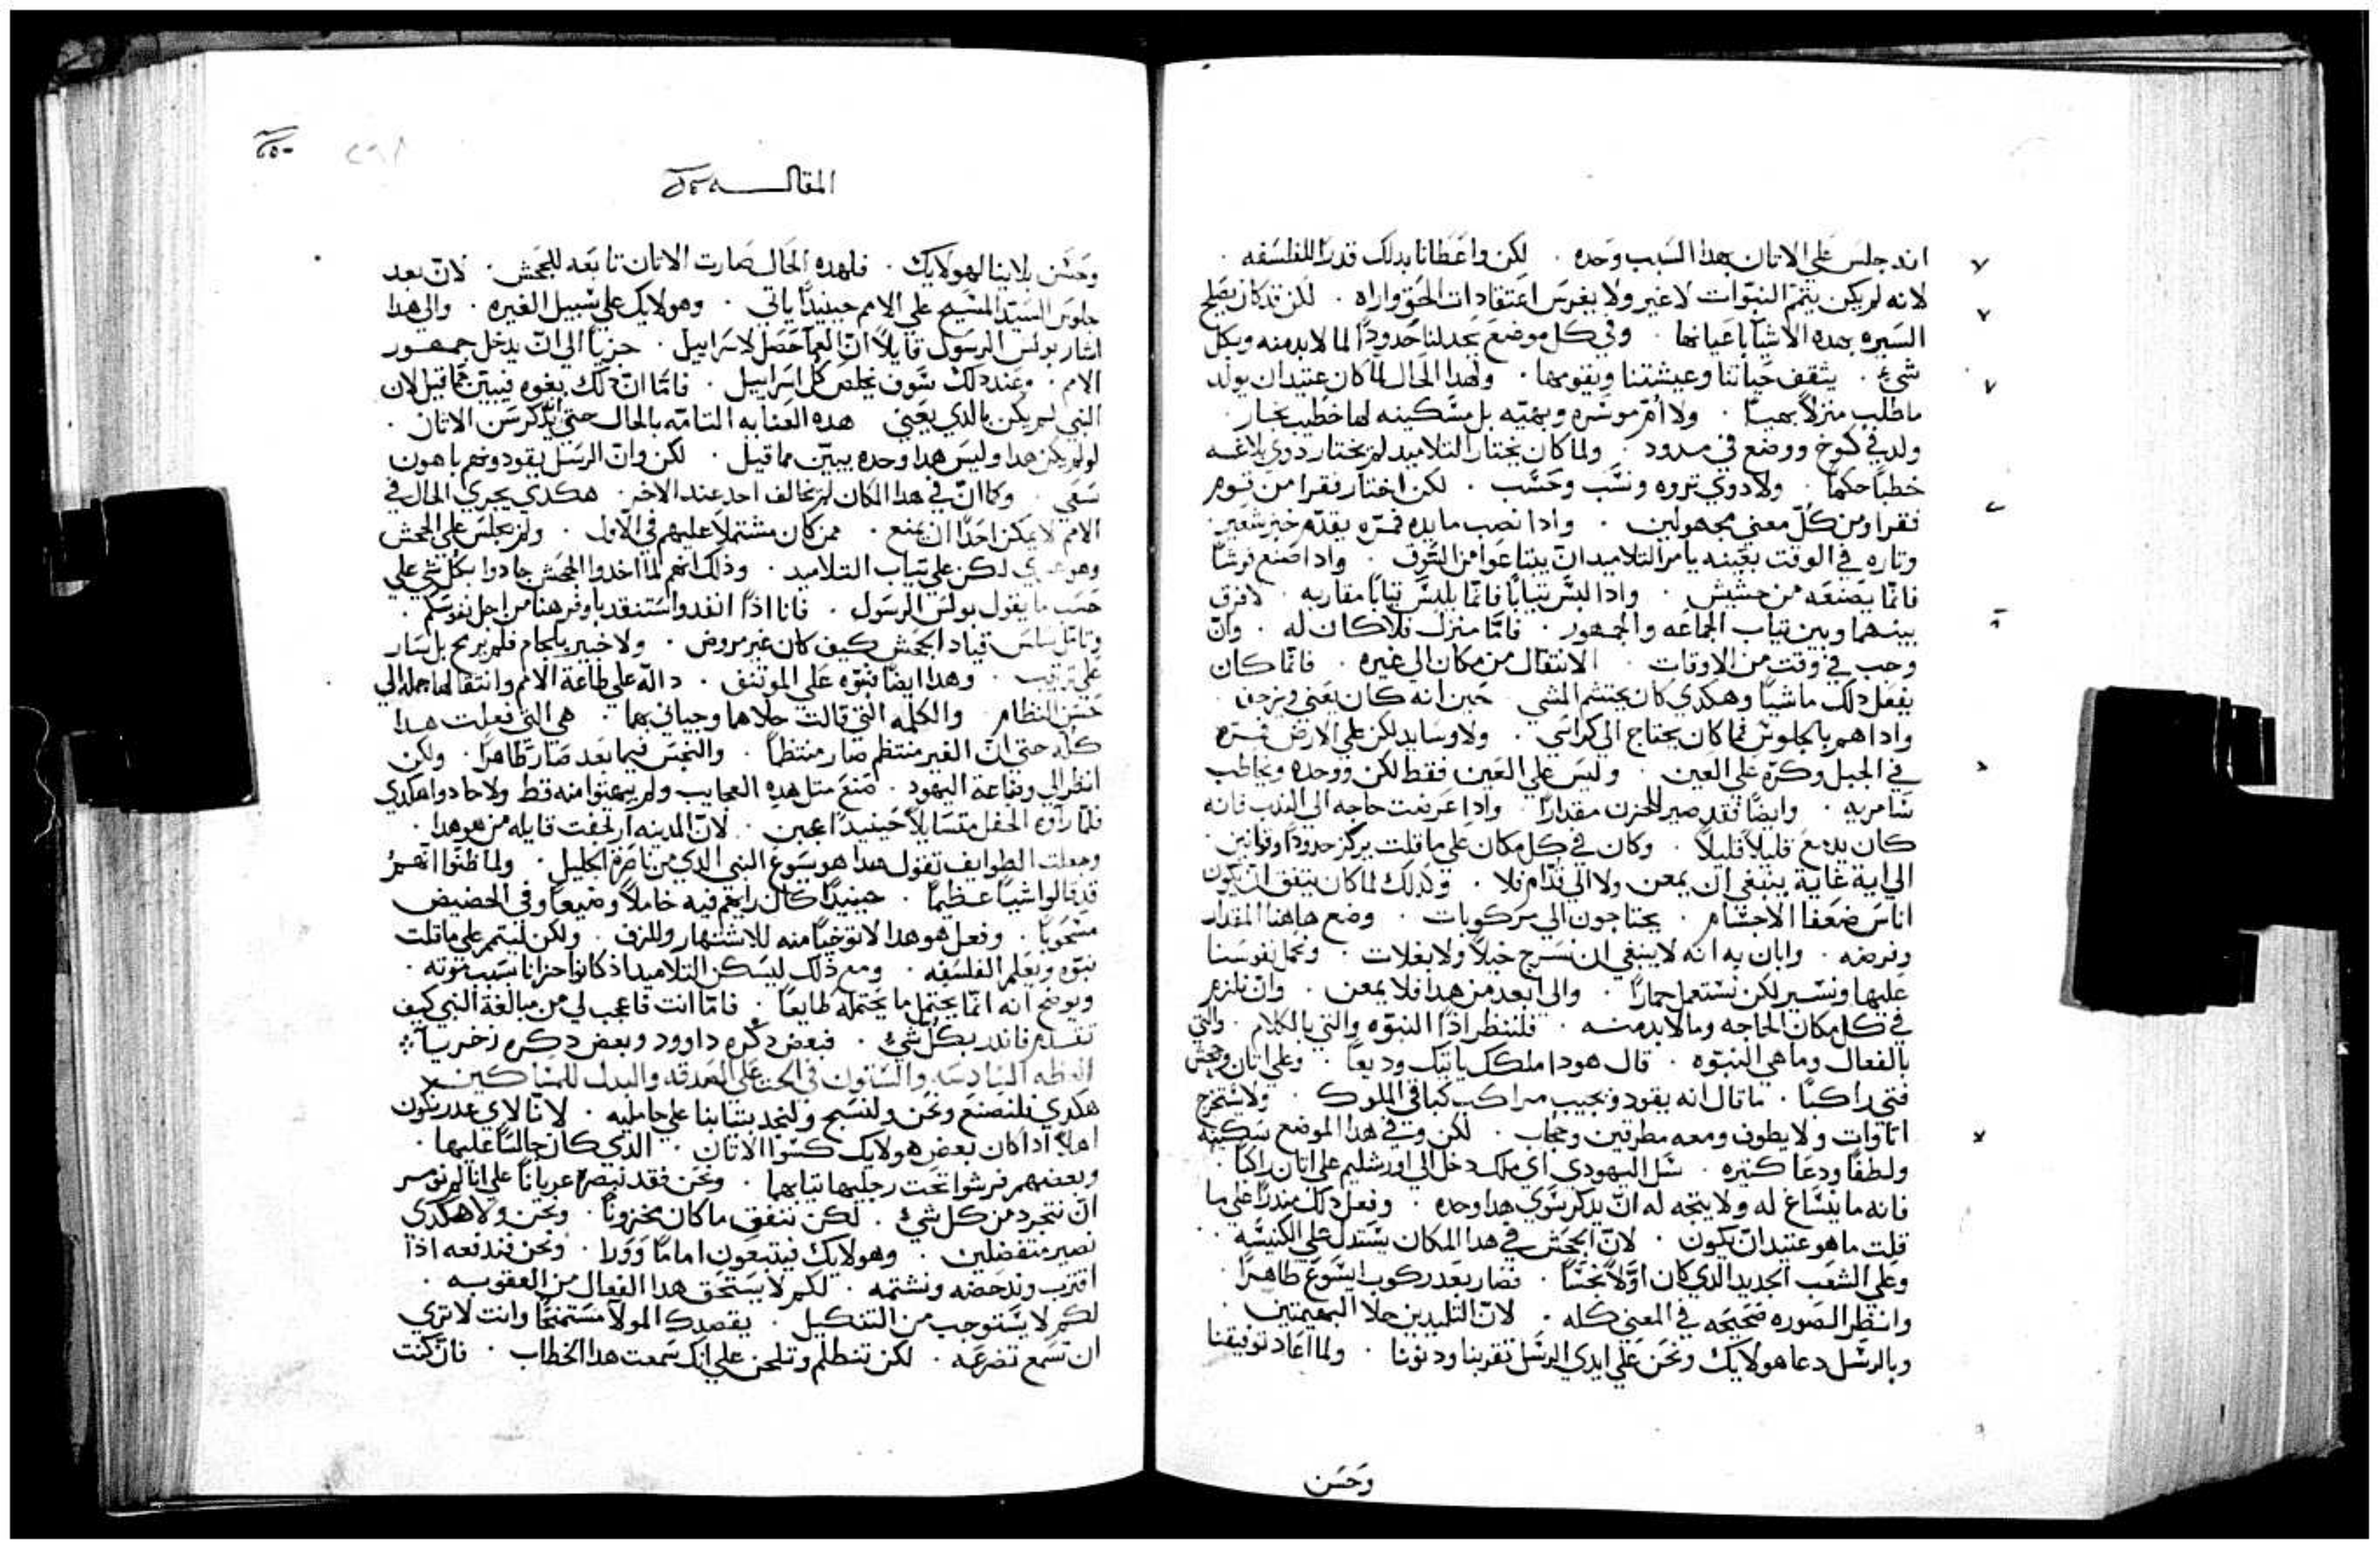 انه جلس علي الاتان بهدا السبب وحده . لكن واعطانا بدلك قدرا للفلسفه .
لانه لم يكن يتمم النبوات لا غير ولا يغرس اعتقادات الحق واراه . لكن قد كان يصلح
السيره بهده الاشيا باعيانها . وفي كل موضع يحد لنا حدودا لما لابد منه وبكل
شيء . يثقف حياتنا وعيشتنا ويقومها . ولهدا الحال لما كان عتيد ان يولد
ما طلب منزلا بهيا . ولا ام موسره وبهيه بل مسكينه لها خطيب نجار .
ولد في كوخ ووضع في مدود . ولما كان يختار التلاميد لم يختار دوي بلاغه
خطبا حكما . ولا دوي تروه ونسب وحسب . لكن اختار فقرا من قوم
فقرا ومن كل معني مجهولين . وادا نصب مايده فمره يقدم خبز شعير
وتاره في الوقت بعينه يامر التلاميد ان يبتاعوا من السوق . وادا صنع فرشا
فانما يصنعه من حشيش . وادا لبس ثيابا فانما يلبس ثيابا مقاربه . لا فرق
بينهما وبين تياب الجماعه والجمهور . فاما منزل فلا كان له . وان
وجب في وقت من الاوقات . الانتقال من مكان الي غيره . فانما كان
يفعل دلك ماشيا وهكدي كان يجتشم المشي . حين انه كان يعني ويزحف .
وادا هم بالجلوس فما كان يحتاج الي كراسي . ولا وسايد لكن علي الارض فمره
في الجبل وكره علي العين . وليس علي العين فقط لكن ووحده ويخاطب
سامريه . وايضا فقد صير للحزن مقدارا . وادا عرضت حاجه الي الندب فانه
كان يدمع قليلا قليلا . وكان في كل مكان علي ما قلت يركز حدودا وقوانين .
الي اية غاية ينبغي ان يمعن ولا الي قدام فلا . وكدلك لما كان يتفق ان يكون
اناس ضعفا الاجسام . يحتاجون الي مركوبات . وضع هاهنا المقدار
وفرضه . وابان به انه لا ينبغي ان نسرج خيلا ولا بغلات . ونحمل نفوسنا
عليها ونسير لكن نستعمل حمارا . والي ابعد من هدا فلا يمعن . وان نلزم
في كل مكان الحاجه وما لابد منه . فلننظر ادا النبوه والتي بالكلام . والتي
بالفعال وما هي النبوه . قال هودا ملكك ياتيك وديعا . وعلي اتان وجحش
فتي راكبا . ما قال انه يقود ويجيب مراكب كباقي الملوك . ولا يستخرج
اتاوات ولا يطوف ومعه مطرقين وحجاب . لكن وفي هدا الموضع سكينه
ولطفا ودعا كتيره . سل اليهودي اي ملك دخل الي اورشليم علي اتان راكبا .
فانه ما ينساغ له ولا يتجه له ان يدكر سوي هدا وحده . وفعل دلك مندرا علي ما
قلت ما هو عتيد ان يكون . لان الجحش في هدا المكان يستدل علي الكنيسه .
وعلي الشعب الجديد الدي كان اولا نجسا . فصار بعد ركوب ايسوع طاهرا .
وانظر الصوره صحيحه في المعني كله . لان التلميدين حلا البهيمتين .
وبالرسل دعا هولايك ونحن علي ايدي الرسل تقربنا ودنونا . ولما اعاد توفيقنا
وحسن
المقالـــــه
وحسن بلاينا لهولايك . فلهده الحال صارت الاتان تابعه للجحش . لان بعد
جلوس السيد المسيح علي الامم حينيدا ياتي . وهولايك علي سبيل الغيره . والي هدا
اشار بولس الرسول قايلا ان العما حصل لاسراييل . حزيا الي ان يدخل جمهور
الامم . وعند دلك سوف يخلص كل اسراييل . فاما ان دلك يغوه فيبين مما قيل لان
النبي لم يكن بالدي يعني هده العنايه التامه بالحال حتي يدكر سن الاتان .
لو لم يكن هدا وليس هدا وحده يبين مما قيل . لكن وان الرسل يقودونهم باهون
سعي . وكما ان في هدا المكان لم يخالف احد عند الاخر . هكدي يجري الحال في
الامم لا يمكن احدا ان يمنع . ممن كان مشتملا عليهم في الاول . ولم يجلس علي الجحش
وهو عري لكن علي تياب التلاميد . وذلك انهم لما اخدوا الجحش جادوا بكل شي علي
حسب ما يقول بولس الرسول . فانا اذا انفد واستنفد باوفر هنا من اجل نفوسكم .
وتامل ساس قياد الجحش كيف كان غير مروض . ولا خبير بلجام فلم يرمح بل سار
علي ترتيب . وهدا ايضا نبوه علي الموتنف . داله علي طاعة الامم وانتقالها جمله الي
حسن النظام . والكلمه التي قالت حلاها وجياني بهما . هي التي فعلت هدا
كله حتي ان الغير منتظم صار منتظما . والنجس فيما بعد صار طاهرا . ولكن
انظر الي وضاعة اليهود . صنع متل هده العجايب ولم يبهتوا منه قط ولا حادوا هكدي
فلما راوه الحفل متسايلا حينيدا عجبن . لان المدينه ارتجفت قايله من هو هدا .
وجعلت الطوايف تقول هدا هو يسوع النبي الدي من ناصرة الجليل . ولما ظنوا انهم
قد قالوا شيا عظيما . حينيدا كان رايهم فيه خاملا وضيعا وفي الحضيض
مسحوبا . وفعل هو هدا لا توخيا منه للاشتهار وللزف . ولكن ليتمم علي ما قلت
نبوه ويعلم الفلسفه . ومع ذلك ليسكن التلاميد اذ كانوا حزانا بسبب موته .
ويوضح انه انما يحتمل ما يحتمله طايعا . فاما انت فاعجب لي من مبالغة النبي كيف
تقدم فاندر بكل شيء . فبعض دكره داوود وبعض دكره زخريا ⁘
العظه السادسه والستون في الحث علي الصدقه والبدل للمساكين
هكدي فلنصنع ونحن ولنسبح ولنجد بتيابنا علي حامليه . لانا لاي عدر نكون
اهلا ادا كان بعض هولايك كسوا الاتان . الدي كان جالسا عليها .
وبعضهم فرشوا تحت رجليها تيابهما . ونحن فقد نبصره عريانا علي انا لم نومر
ان نتجرد من كل شيء . لكن ننفق ما كان مخزونا . ونحن ولا هكدي
نصير متفضلين . وهولايك فيتبعون اماما وورا . ونحن فندفعه اذا
اقترب وندحضه ونشتمه . لكم لا يستحق هدا الفعال من العقوبه .
لكم لا يستوجب من التنكيل . يقصدك المولا مستمنحا وانت لا تري
ان تسمع تضرعه . لكن تتظلم وتلحن علي انك سمعت هدا الخطاب . فان كنت